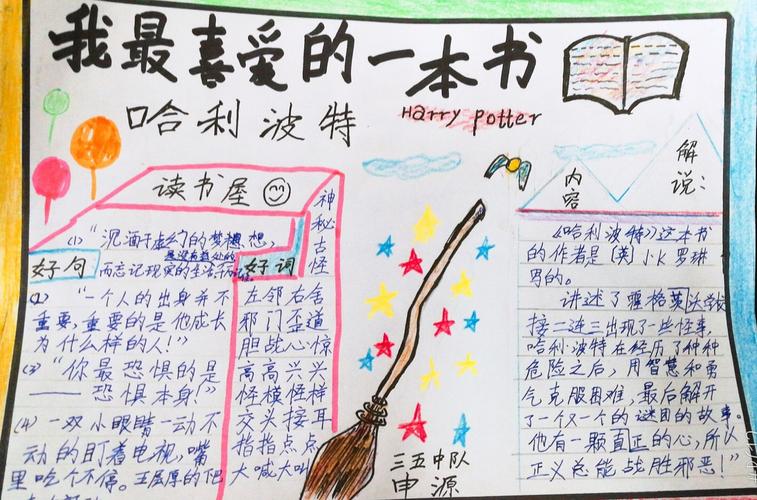 我最喜爱的一本书
哈利波特 Harry potter
读书屋
神秘古怪
好句
(1)“沉酒于虚幻的梦想,
而忘记现实的生活,
好词
(2)“一个人的出身并不
重要,重要的是他成长
为什么样的人!”
(3)“你最恐惧的是
——恐惧本身!”
(4)一双小眼睛一动不
动的盯着电视,嘴
里吃个不停。
左邻右舍
邪门歪道
胆战心惊
高高兴兴
怪模怪样
交头接耳
指指点点
大喊大叫
三五中队
申源
内容
解说:
《哈利波特》这本书
的作者是[英]J·K罗琳
写的。
讲述了霍格英沃学校
接二连三出现了一些怪事,
哈利·波特在经历了种种
危险之后,用智慧和勇
气克服困难,最后解开
了一个又一个的谜团的故事。
他有一颗真正的心,所以
正义总能战胜邪恶!”